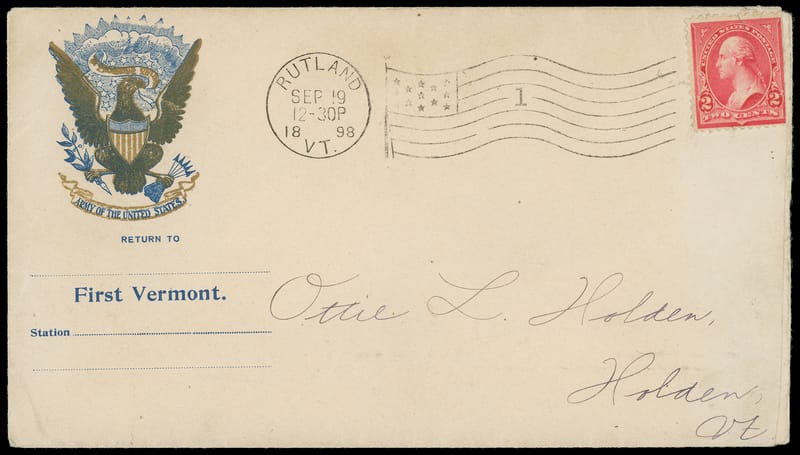 ARMY OF THE UNITED STATES.
RETURN TO
First Vermont.
Station
RUTLAND
SEP 19
12-30P
18 98
VT.
1
UNITED STATES POSTAGE
2 2
TWO CENTS
Ottie L. Holden,
Holden,
Vt